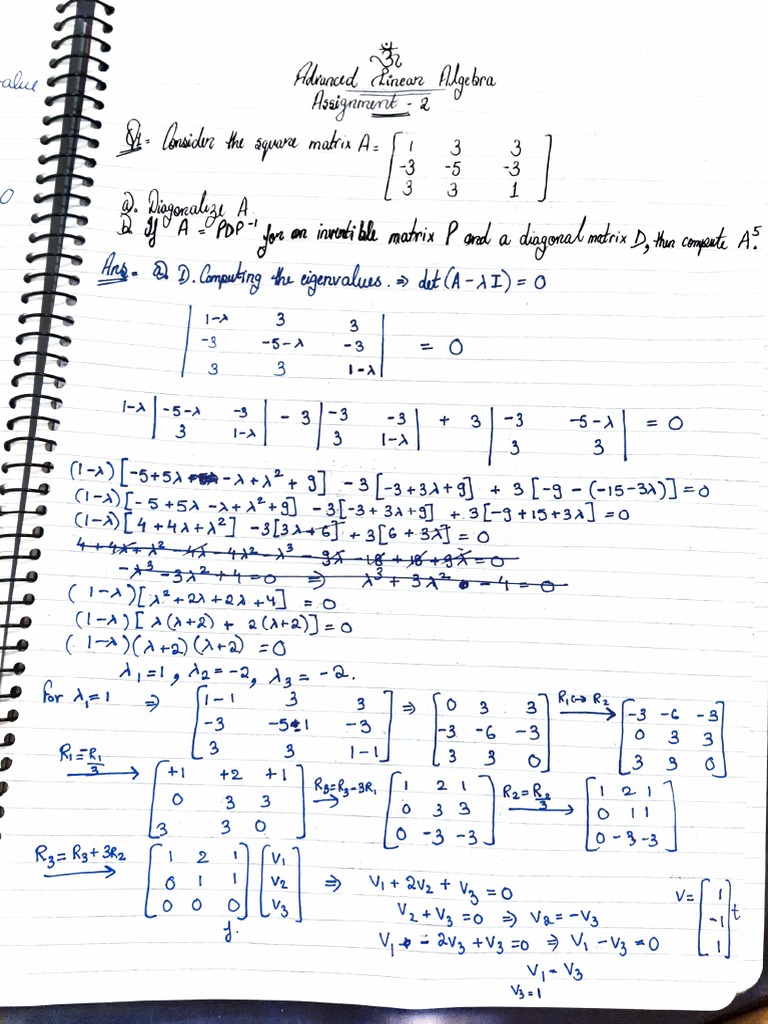 alue
0
ॐ
Advanced Linear Algebra
Assignment - 2
Q1. Consider the square matrix A = [ 1 3 3
-3 -5 -3
3 3 1 ]
a. Diagonalize A.
b. If A = PDP⁻¹ for an invertible matrix P and a diagonal matrix D, then compute A⁵.
Ans. a. 1). Computing the eigenvalues. ⇒ det (A - λI) = 0
| 1-λ 3 3 |
| -3 -5-λ -3 | = 0
| 3 3 1-λ |
1-λ | -5-λ -3 | - 3 | -3 -3 | + 3 | -3 -5-λ | = 0
| 3 1-λ | | 3 1-λ | | 3 3 |
(1-λ) [-5+5λ -λ+λ² + 9] -3 [-3+3λ+9] + 3 [-9 - (-15-3λ)] = 0
(1-λ) [-5+5λ -λ+λ²+9] -3[-3+3λ+9] + 3[-9+15+3λ] = 0
(1-λ) [4+4λ+λ²] -3[3λ+6] + 3[6+3λ] = 0
4 + 4λ + λ² - 4λ - 4λ² - λ³ - 9λ - 18 + 18 + 9λ = 0
-λ³ - 3λ² + 4 = 0 ⇒ λ³ + 3λ² - 4 = 0
(1-λ) [λ²+2λ+2λ+4] = 0
(1-λ) [λ(λ+2) + 2(λ+2)] = 0
(1-λ) (λ+2) (λ+2) = 0
λ₁=1, λ₂=-2, λ₃=-2.
For λ₁=1 ⇒ [ 1-1 3 3 ] ⇒ [ 0 3 3 ] R₁↔R₂ → [ -3 -6 -3 ]
[ -3 -5-1 -3 ] [ -3 -6 -3 ] [ 0 3 3 ]
[ 3 3 1-1 ] [ 3 3 0 ] [ 3 3 0 ]
R₁=-R₁/3 → [ +1 +2 +1 ] R₃=R₃-3R₁ → [ 1 2 1 ] R₂=R₂/3 → [ 1 2 1 ]
[ 0 3 3 ] [ 0 3 3 ] [ 0 1 1 ]
[ 3 3 0 ] [ 0 -3 -3 ] [ 0 -3 -3 ]
R₃=R₃+3R₂ → [ 1 2 1 ] [ V₁ ] ⇒ V₁ + 2V₂ + V₃ = 0 V = [ 1 ]
[ 0 1 1 ] [ V₂ ] V₂+V₃=0 ⇒ V₂=-V₃ [ -1 ] t
[ 0 0 0 ] [ V₃ ] V₁ - 2V₃+V₃=0 ⇒ V₁-V₃=0 [ 1 ]
V₁=V₃
V₃=1